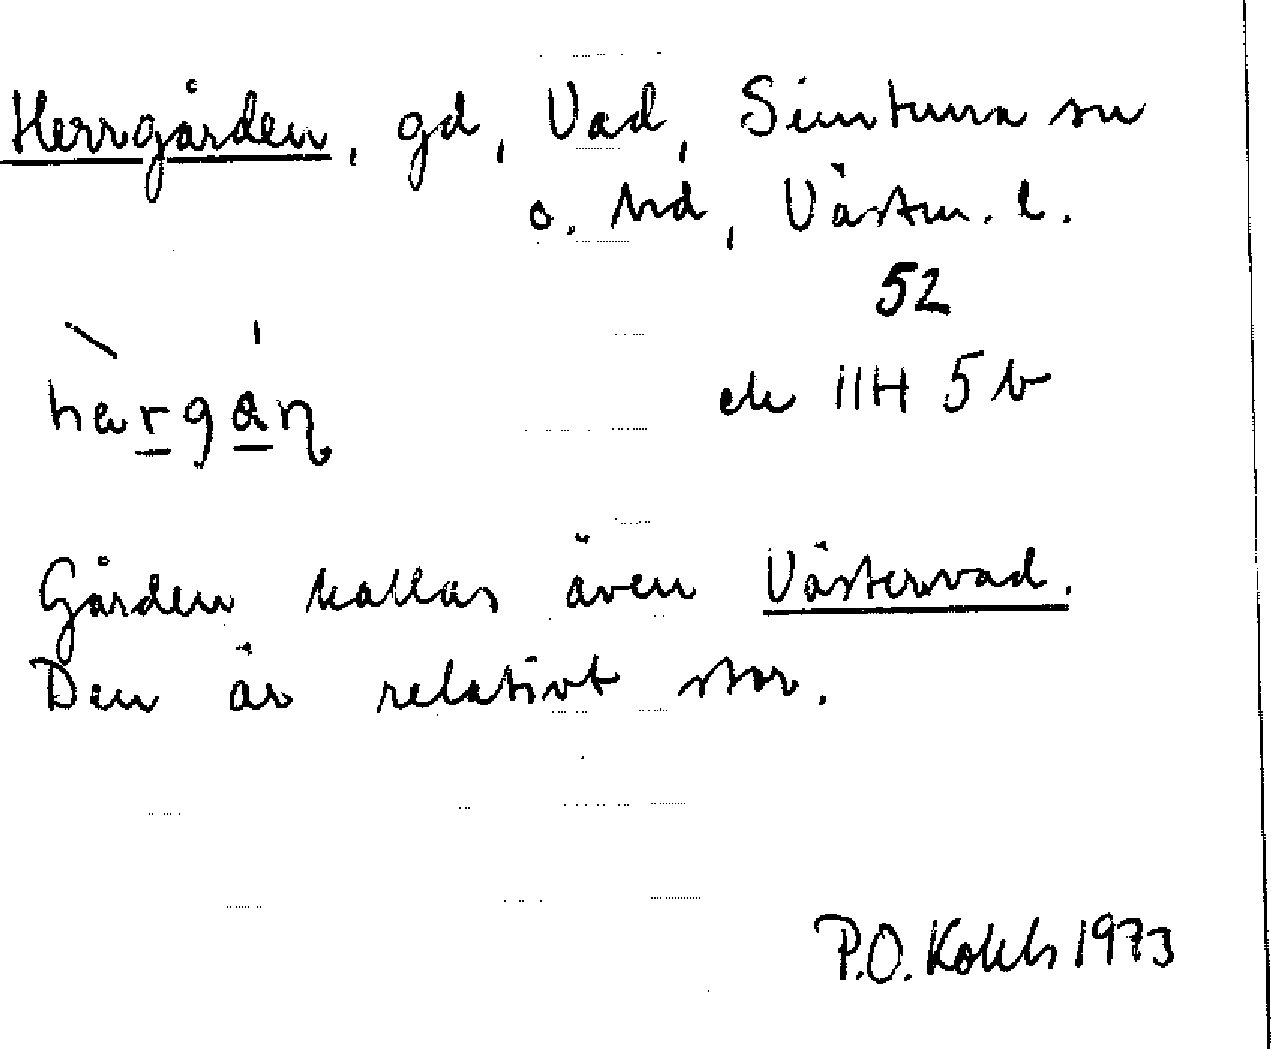 Herrgården, gd, Vad, Simtuna sn
o. hd, Västm. l.
52
ek 11H 5b
Gården kallas även Västervad.
Den är relativt stor.
P.O. 1973